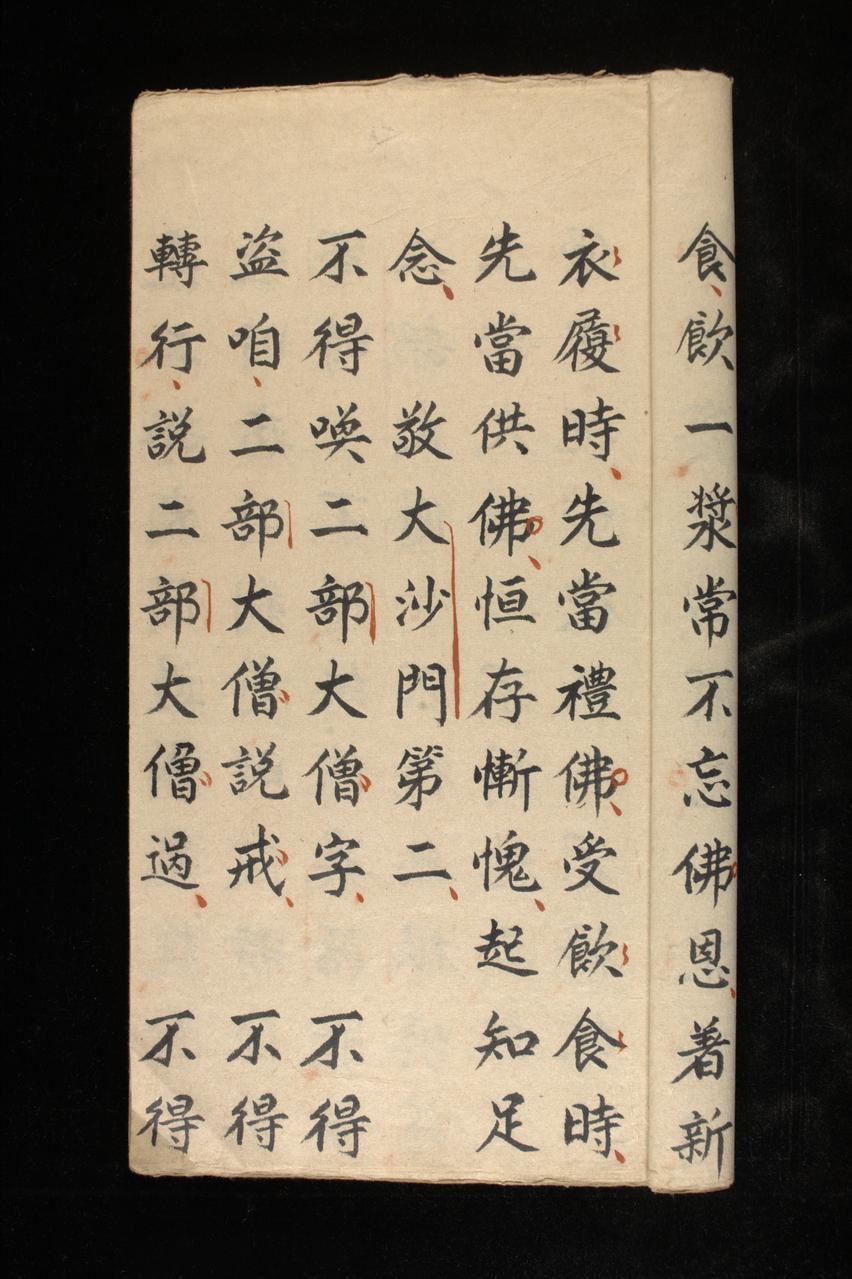 食飲一漿常不忘佛恩著新
衣履時先當禮佛受飲食時
先當供佛恒存慚愧起知足
念　敬大沙門第二
不得喚二部大僧字　不得
盜咱二部大僧說戒　不得
轉行說二部大僧過　不得